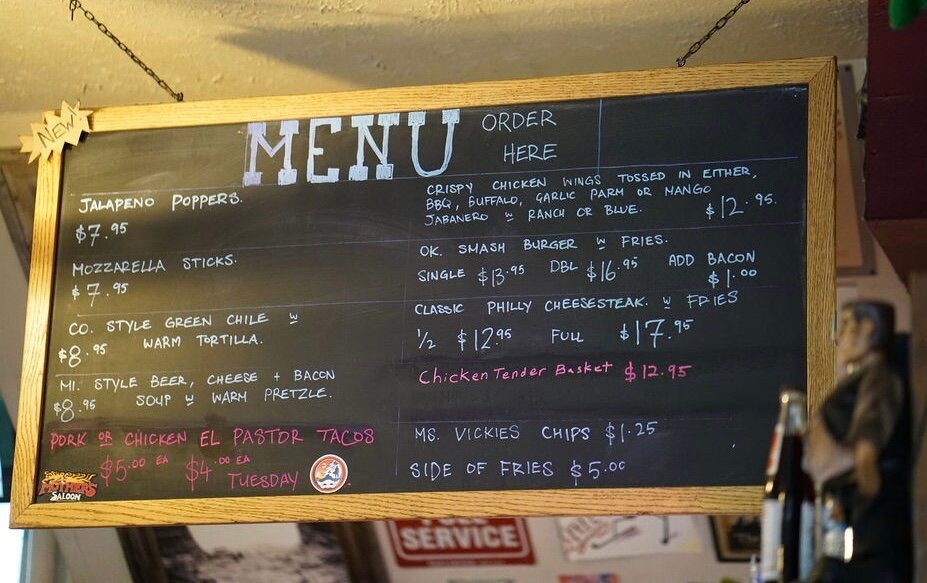 NEW!
MENU
ORDER
HERE
JALAPENO POPPERS.
$7.95
MOZZARELLA STICKS.
$7.95
CO. STYLE GREEN CHILE W
$8.95 WARM TORTILLA.
MI. STYLE BEER, CHEESE + BACON
$8.95 SOUP W WARM PRETZLE.
PORK OR CHICKEN EL PASTOR TACOS
$5.00 EA $4.00 EA
TUESDAY
MOTHERS
SALOON
CRISPY CHICKEN WINGS TOSSED IN EITHER,
BBQ, BUFFALO, GARLIC PARM OR MANGO
JABANERO W RANCH OR BLUE. $12.95.
OK. SMASH BURGER W FRIES.
SINGLE $13.95 DBL $16.95 ADD BACON
$1.00
CLASSIC PHILLY CHEESESTEAK. W FRIES
1/2 $12.95 FULL $17.95
Chicken Tender Basket $12.95
MS. VICKIES CHIPS $1.25
SIDE OF FRIES $5.00
SERVICE